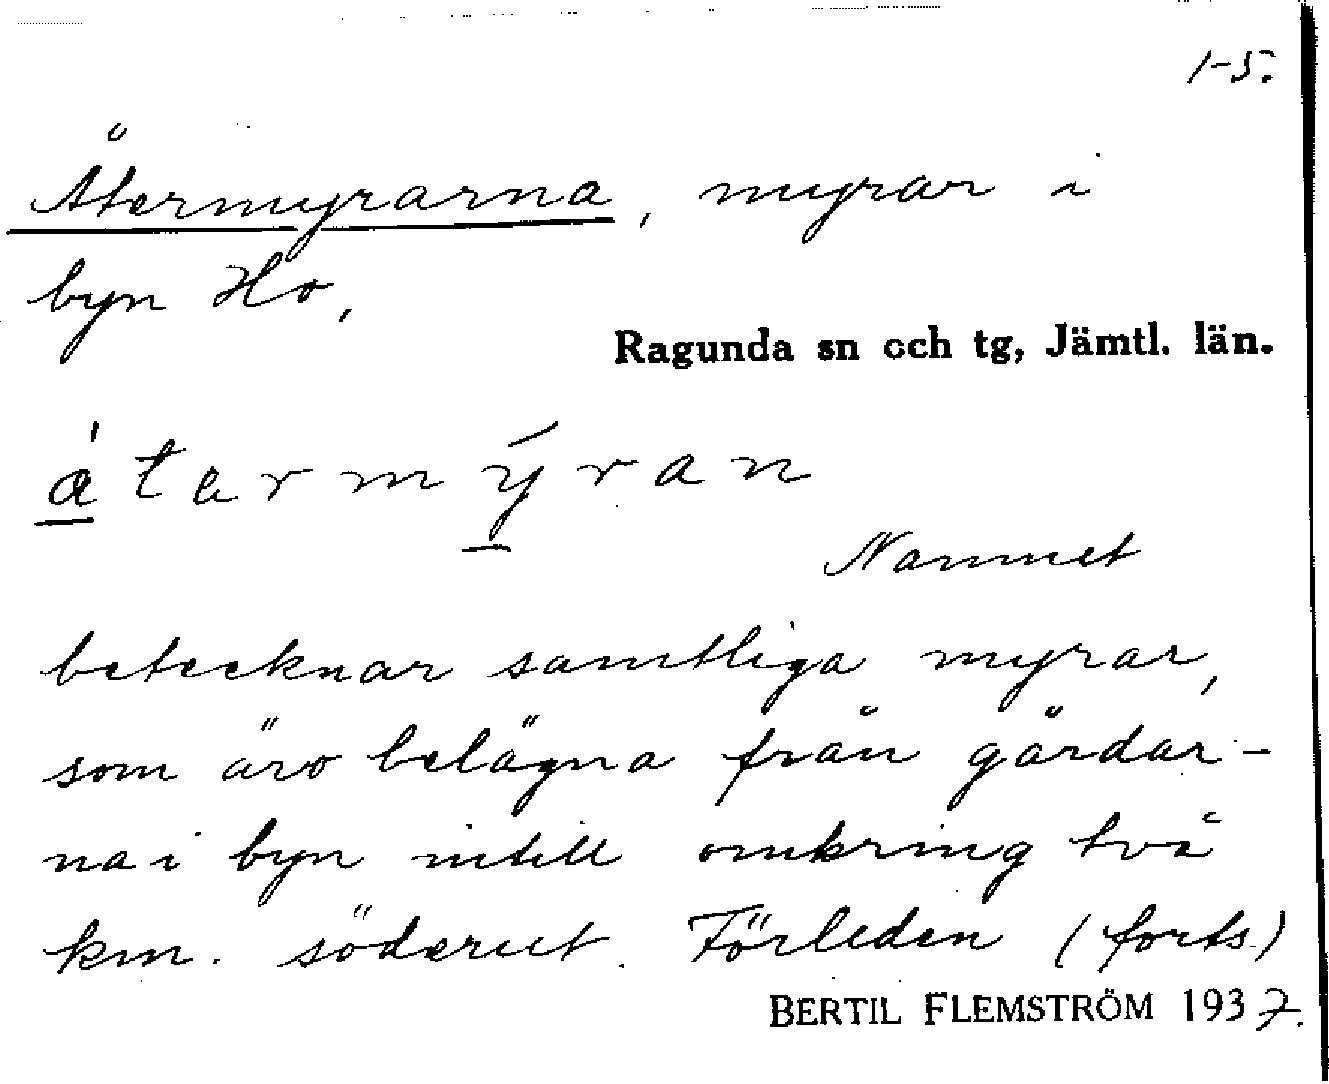 1-5.
Återmyrarna, myrar i
byn Ho,
Ragunda sn och tg, Jämtl. län.
átermýran
Namnet
betecknar samtliga myrar,
som äro belägna från gårdar-
na i byn intill omkring två
km. söderut. Förleden (forts.)
BERTIL FLEMSTRÖM 1937.